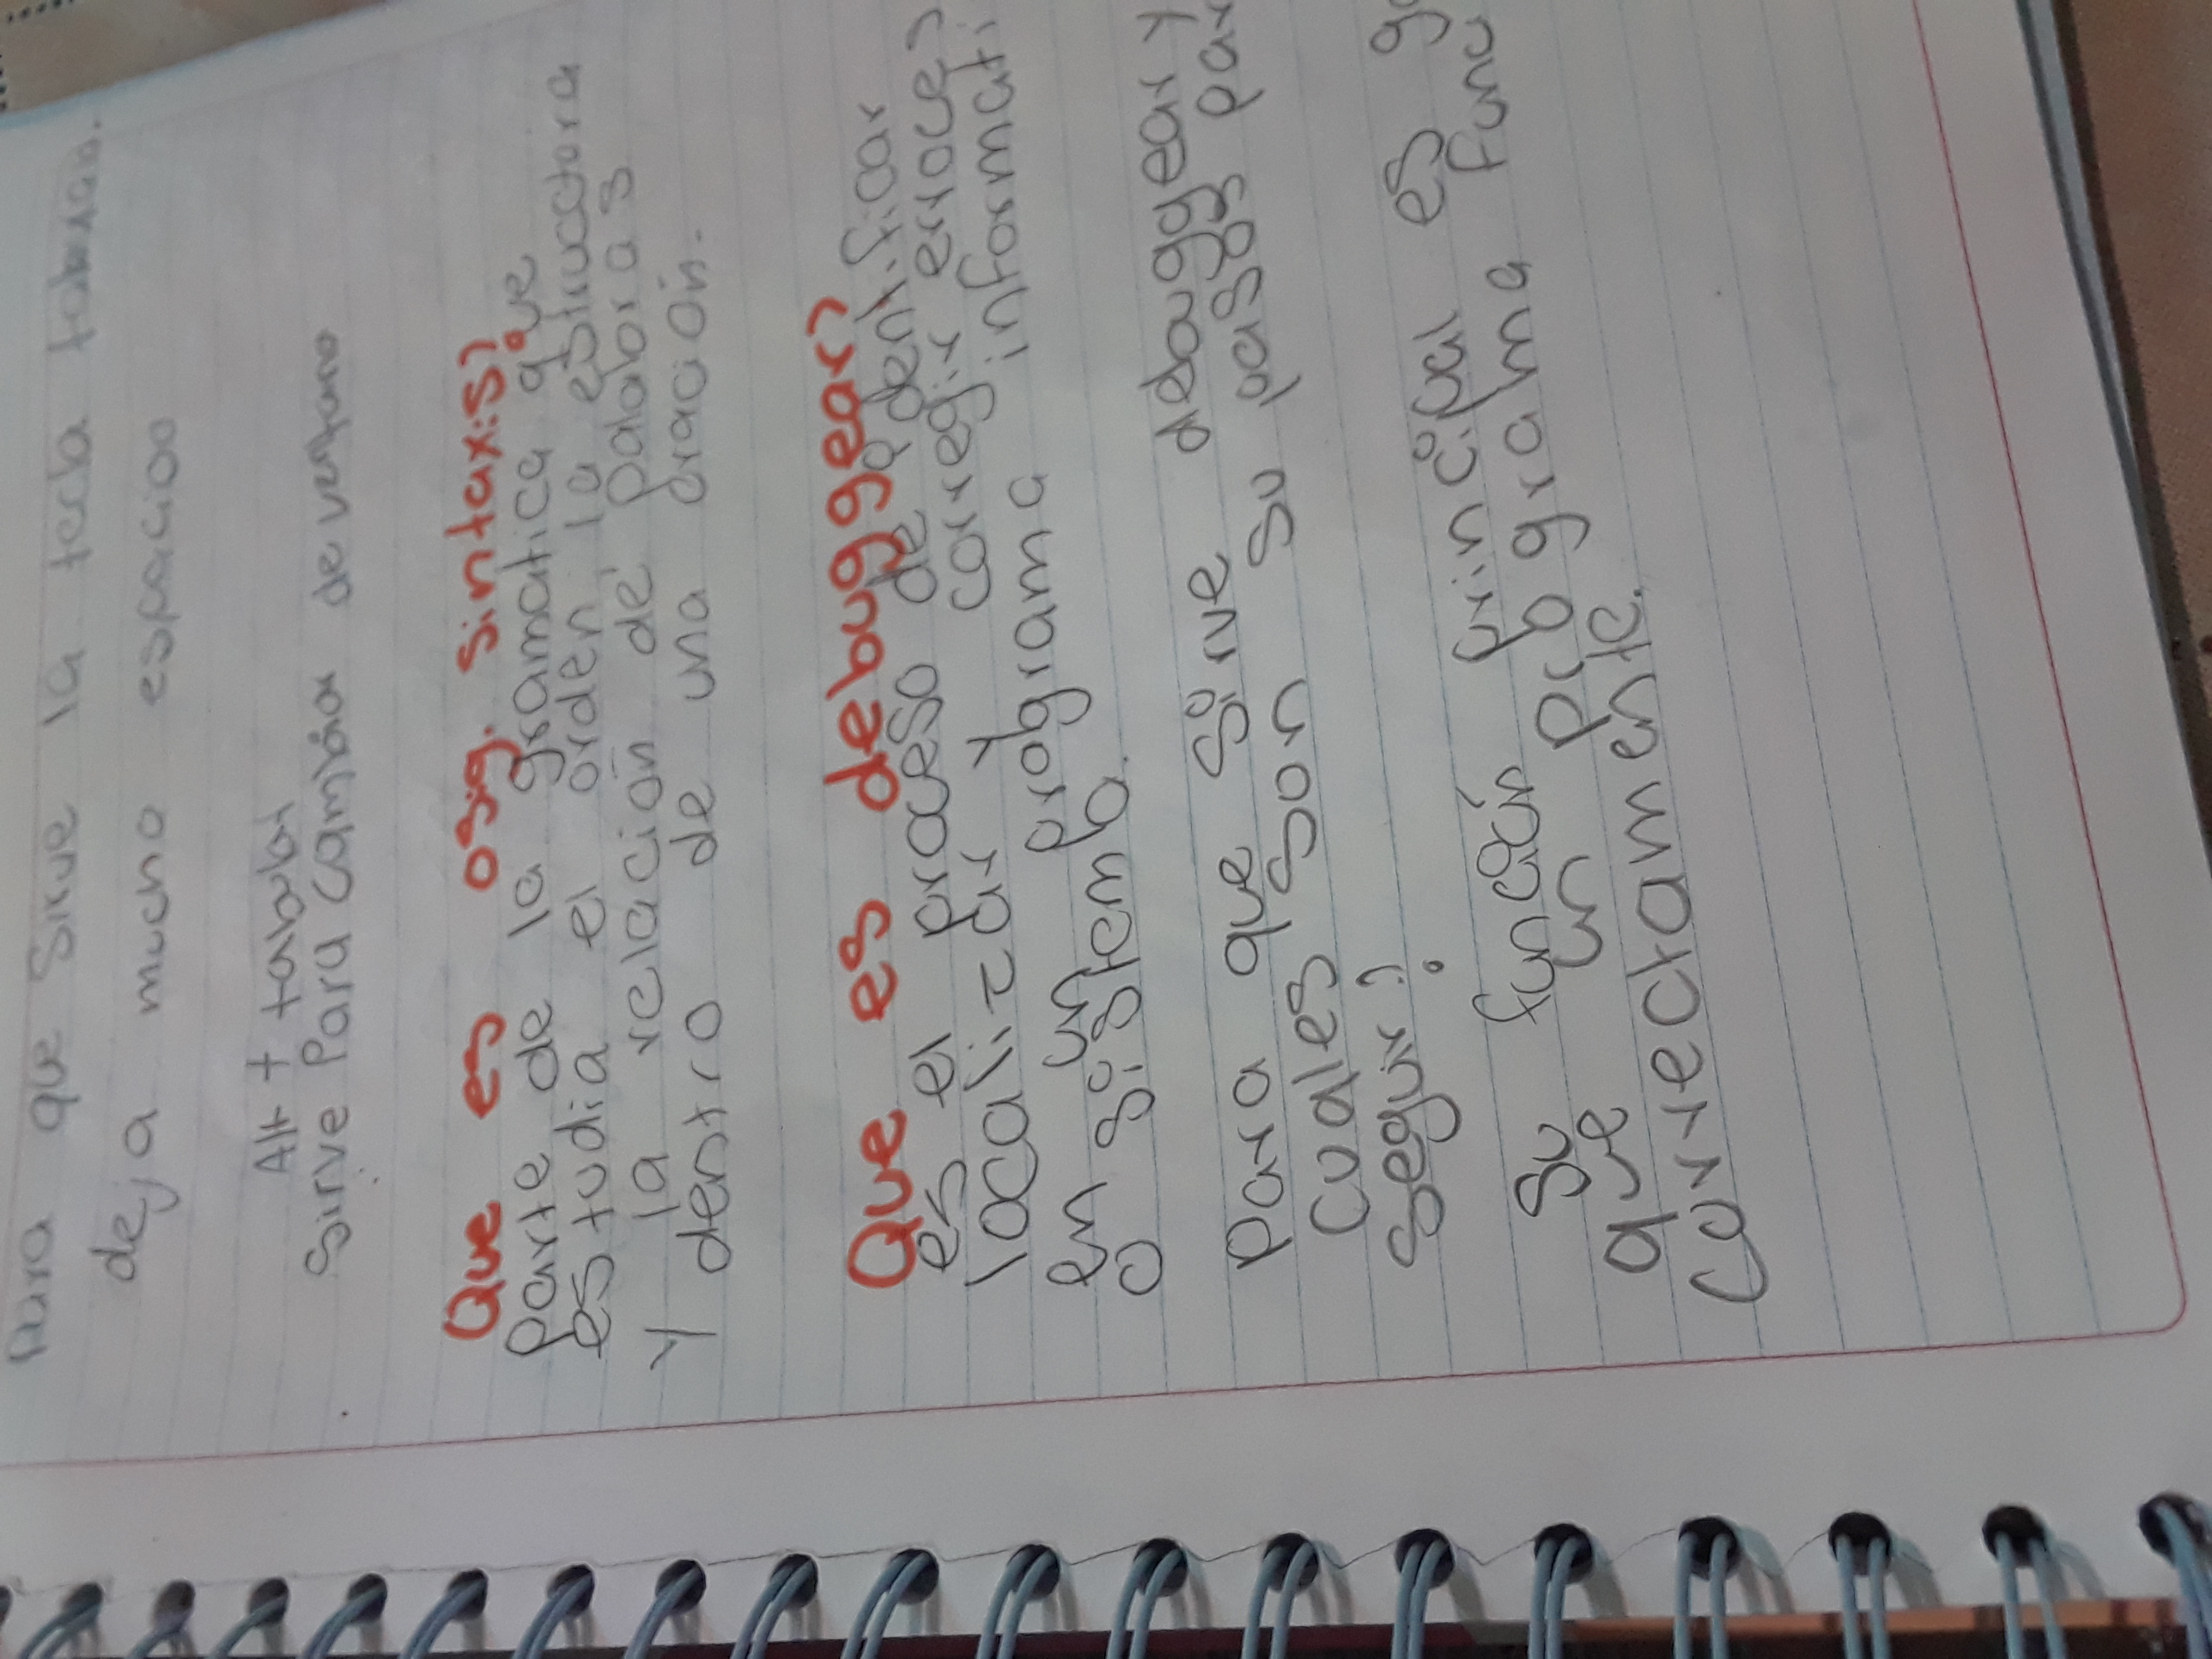 Para que sirve la tecla tabulab.
deja mucho espacioo
Alt + tabulaj
sirve Para Cambiar de ventana
Que es osig. sintaxis?
Parte de la gramatica que
estudia el orden la estructora
Y la relación de palabras
dentro de una oración.
Que es debuggear?
es el proceso de identificar
localizar y corregir errores
en un programa informati
o sistema.
para que sirve debuggear y
cuales son su pasos par
seguir?
Su función principal es ga
que un programa func
correctamente.